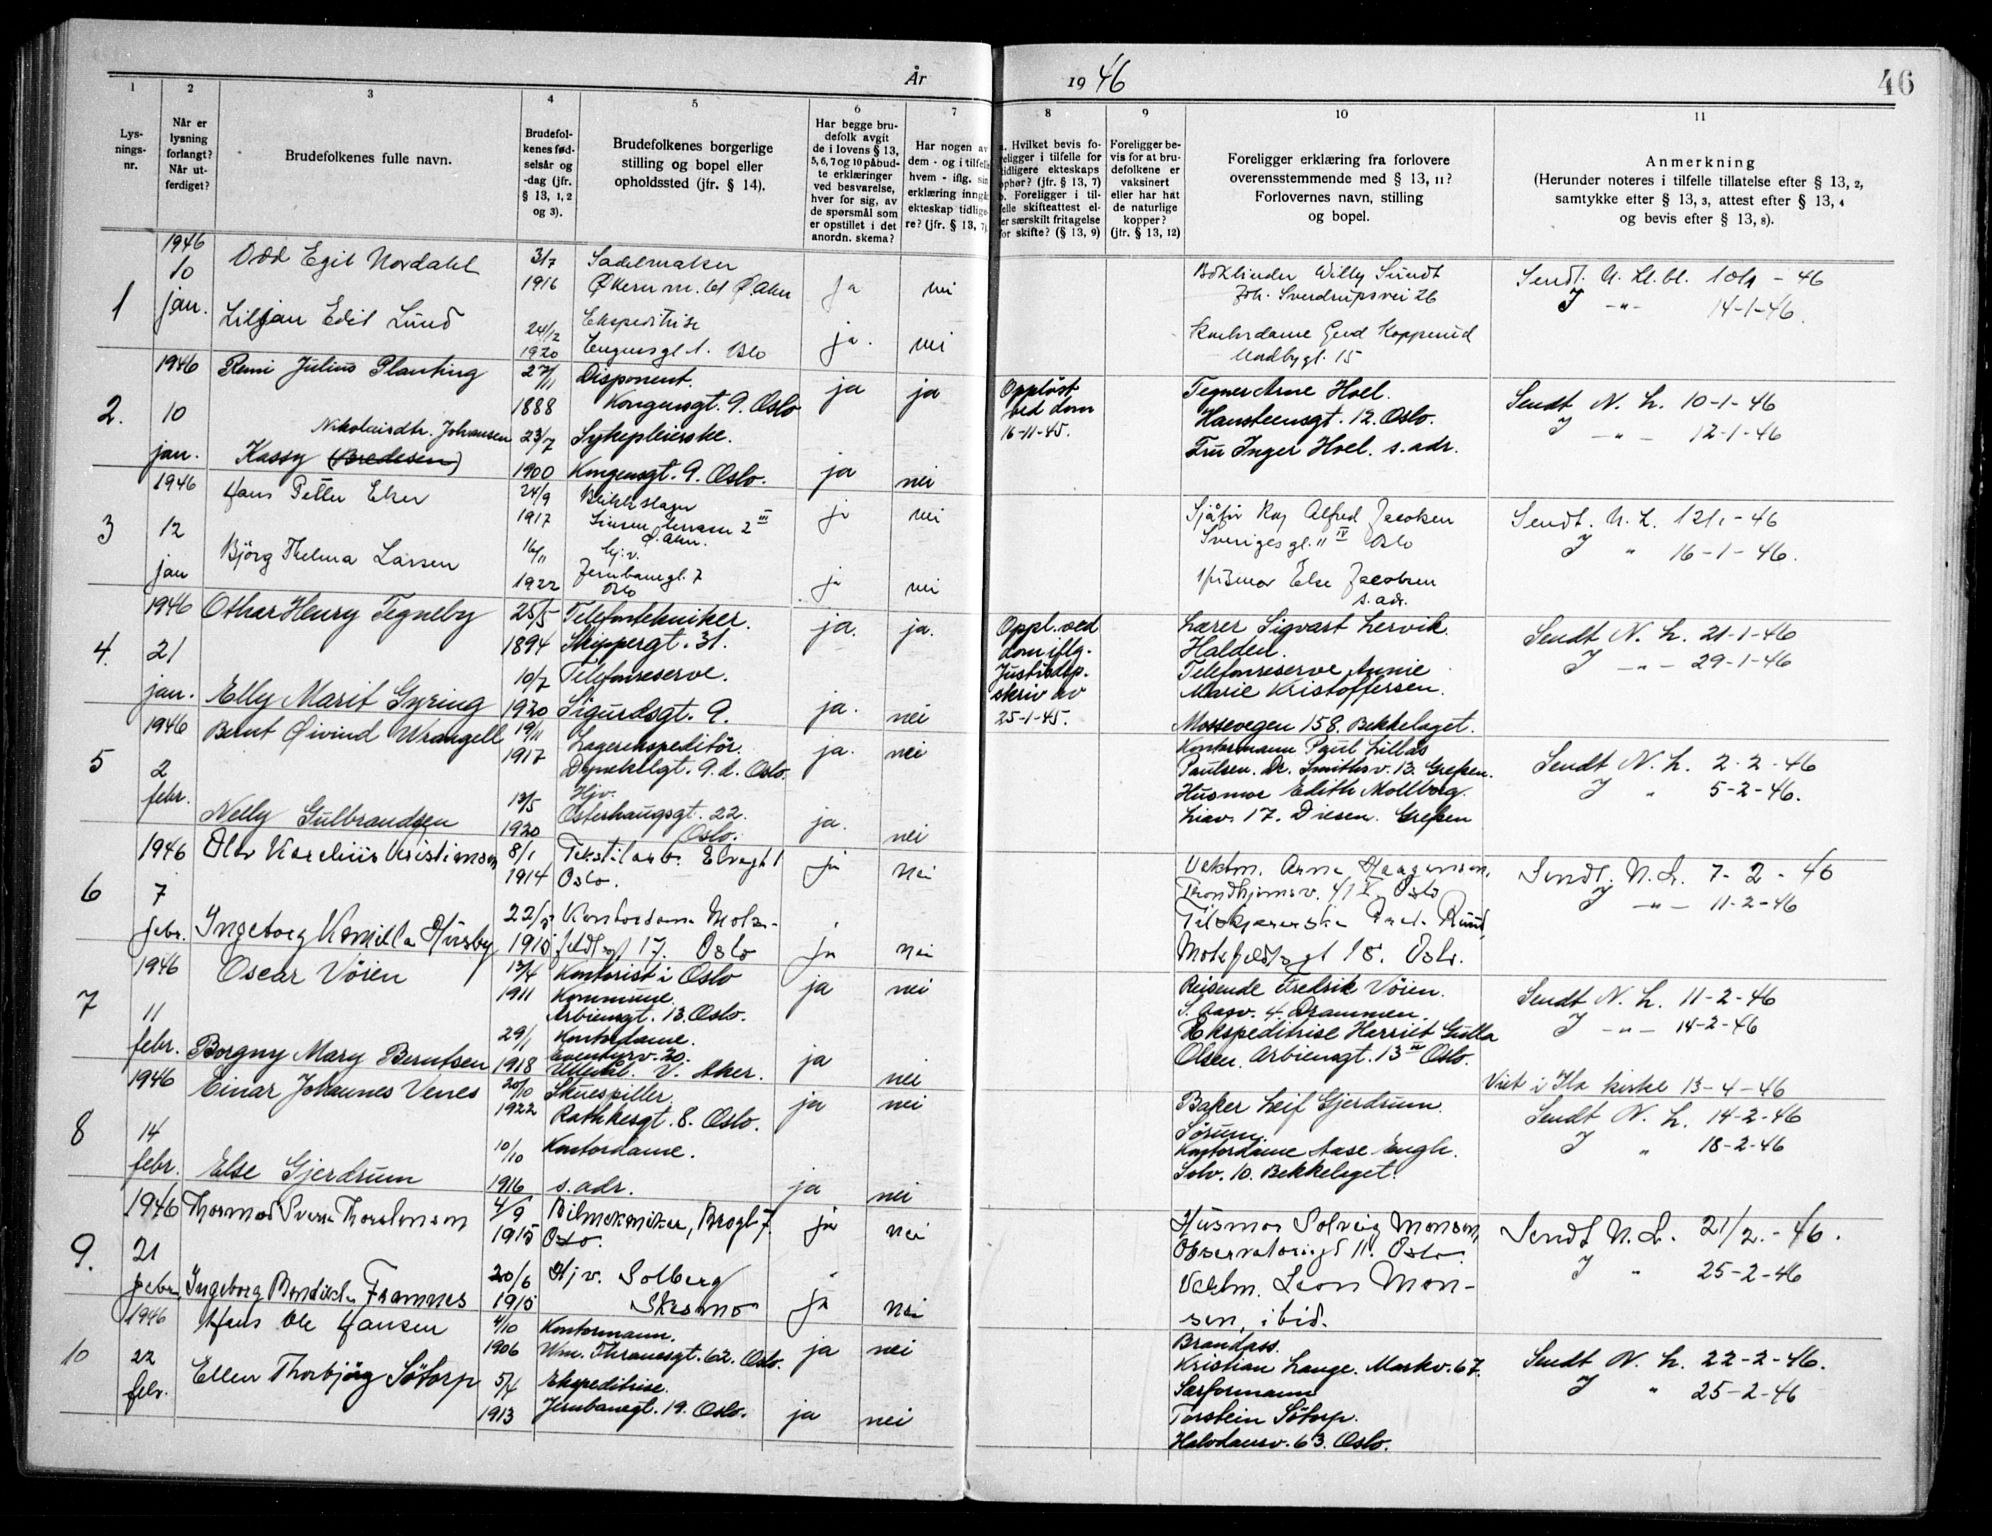 År 1946
46
1
2
3
4
5
6
7
8
9
10
11
Lys-
nings-
nr.
Når er
lysning
forlangt?
Når ut-
ferdiget?
Brudefolkenes fulle navn.
Brudefol-
kenes fød-
selsår og
-dag (jfr.
§ 13, 1, 2
og 3).
Brudefolkenes borgerlige
stilling og bopel eller
opholdssted (jfr. § 14).
Har begge bru-
defolk avgit
de i lovens § 13,
5, 6, 7 og 10 påbud-
te erklæringer
ved besvarelse,
hver for sig, av
de spørsmål som
er opstillet i det
anordn. skema?
Har nogen av
dem - og i tilfelle
hvem - iflg. sin
erklæring inngåt
ekteskap tidlige-
re? (jfr. § 13, 7).
a. Hvilket bevis fo-
religger i tilfelle for
tidligere ekteskaps
ophør? (jfr. § 13, 7)
b. Foreligger i til-
felle skifteattest el-
ler særskilt fritagelse
for skifte? (§ 13, 9)
Foreligger be-
vis for at bru-
defolkene er
vaksinert
eller har hat
de naturlige
kopper?
(jfr. § 13, 12)
Foreligger erklæring fra forlovere
overensstemmende med § 13, 11?
Forlovernes navn, stilling
og bopel.
Anmerkning
(Herunder noteres i tilfelle tillatelse efter § 13, 2,
samtykke efter § 13, 3, attest efter § 13, 4
og bevis efter § 13, 8).
1
1946
10
jan.
Odd Egil Nordahl
3/7
1916
Sadelmaker
ja
nei
Liljan Edel Lund
24/2
1920
Ekspeditrise
Oslo
ja.
nei
Willy Sundt
Joh. Sverdrupsvei 26
Gerd Kopperud
15
14-1-46.
2.
1946
10
jan.
Julius Planting
27/11
1888
Disponent.
Kongensgt. 9. Oslo
ja
ja
Oppløst
ved dom
16-11-45.
Nikolaisdtr. Johansen
Kassy (Bredesen)
23/7
1900
Sykepleierske.
Kongensgt. 9. Oslo.
ja
nei
Tegner Arne Hoel.
Hansteensgt. 12. Oslo.
Fru Inger Hoel. s. adr.
Sendt N. L. 10-1-46
J —"— 12-1-46
3
1946
12
jan
Hans Petter Eker
24/9
1917
ja
nei
Bjørg Thelma Larsen
16/11
1922
Hj.v.
Jernbanegt. 7
Oslo
ja
nei
Alfred Jacobsen
Oslo
Else Jacobsen
s. adr.
Sendt. N. L. 12/1 - 46
J " 16-1-46.
4.
1946
21
jan.
Othar Henry Tegneby
25/5
1894
Telefontekniker.
Skippergt. 31.
ja.
ja.
Oppl. ved
dom iflg.
Justisdep.
skriv av
25-1-45.
Elly Marit Gyring
10/7
1920
Telefonreserve.
Sigurdsgt. 9.
ja.
nei
Lærer Sigvart Lervik.
Halden.
Telefonreserve Annie
Marie Kristoffersen.
Mossevegen 158. Bekkelaget.
Sendt N. L. 21-1-46
J —"— 29-1-46
5
1946
2
febr.
Bernt Øivind Wrangell
19/11
1917
Lagerekspeditør.
Oslo.
ja.
nei
Nelly Gulbrandsen
13/5
1920
Hjv.
Østerhaugsgt. 22.
Oslo.
ja.
nei
Kontormann Paul Lillas
Paulsen. Dr. Smithsv. 13. Grefsen.
Husmor Edith Mollborg.
Liav. 17. Disen. Grefsen
Sendt N. L. 2-2-46
J " 5-2-46.
6
1946
7
febr.
Olav Kristiansen
8/1
1914
Oslo.
ja
nei
Ingeborg Kamilla Husby
Kontordame
17. Oslo
ja
nei
Arne Haagensen,
Trondhjemsv. Oslo
Ruud,
Motzfeldtsgt 18. Oslo.
Sendt. N. L. 7-2-46
J —"— 11-2-46
7
1946
11
febr.
Oscar Vöien
13/4
1911
Kontorist i Oslo
Kommune.
Arbiensgt. 13. Oslo.
ja
nei
Borgny Mary Berntsen
29/1
1918
Kontordame.
Eventyrv. 20.
V. Aker.
ja
nei
Reisende Fredrik Vöien.
4. Drammen.
Ekspeditrise Herriet Gulla
Olsen. Arbiensgt. 13 Oslo.
Sendt N. L. 11-2-46
J —"— 14-2-46
8
1946
14
febr.
Einar Johannes Venes
20/10
1922
Skuespiller.
Rathkesgt. 8. Oslo.
ja
nei
Else Gjerdrum
10/10
1916
Kontordame.
s. adr.
ja
nei
Baker Leif Gjerdrum.
Sørum.
Kontordame Aase Engh.
Solv. 10. Bekkelaget.
Viet i Ila kirke 13-4-46
Sendt N. L. 14-2-46
J " 18-2-46
9.
1946
21
febr.
Thormod Sverre Thorstensen
4/9
1915
Bilmekaniker, Brogt 7.
Oslo.
ja
nei
Ingeborg Framnes
20/6
1915
Hjv. Solberg
Skesmo
ja
nei
Husmor Solveig Monsen,
Observatoriegt 11. Oslo
Leon Mon-
sen, ibid.
Sendt N. L. 21/2. - 46.
J " 25-2-46
10
1946
22
febr.
Hans Ole Hansen
4/10
1906
Kontormann.
Wm. Thranesgt. 62. Oslo.
ja
nei
Ellen Thorbjörg Sötorp
5/4
1913
Ekspeditrise.
Jernbanegt. 19. Oslo.
ja
nei
Brandass.
Kristian Lange. Markv. 67.
Særformann
Torstein Sötorp.
Halvdansv. 63. Oslo.
Sendt N. L. 22-2-46.
J " 25-2-46